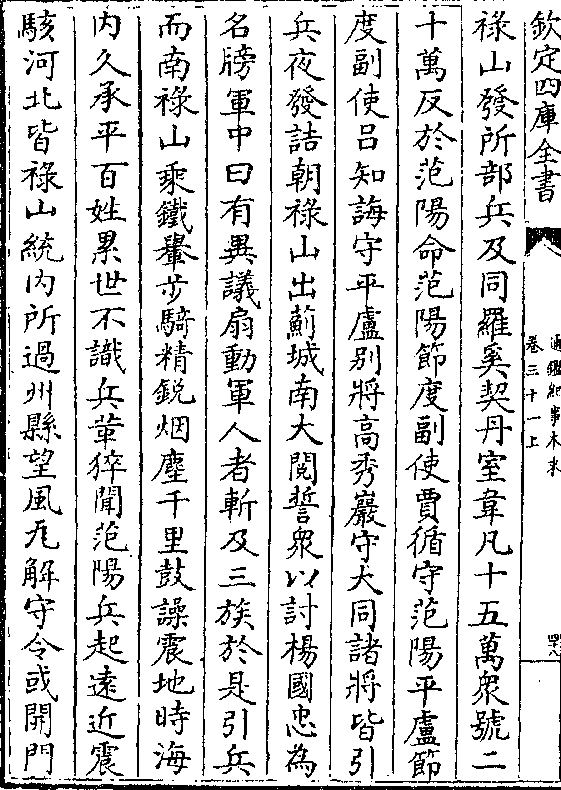 欽定四庫全書
通鑑紀事本末
卷三十一上
四六
祿山發所部兵及同羅奚契丹室韋凡十五萬衆號二
十萬反於范陽命范陽節度副使賈循守范陽平盧節
度副使吕知誨守平盧别將髙秀巖守大同諸將皆引
兵夜發詰朝祿山出薊城南大閲誓衆以討楊國忠為
名牓軍中曰有異議扇動軍人者斬及三族於是引兵
而南祿山乘鐵轝步騎精鋭烟塵千里鼓譟震地時海
内久承平百姓累世不識兵革猝聞范陽兵起遠近震
駭河北皆祿山統内所過州縣望風瓦解守令或開門